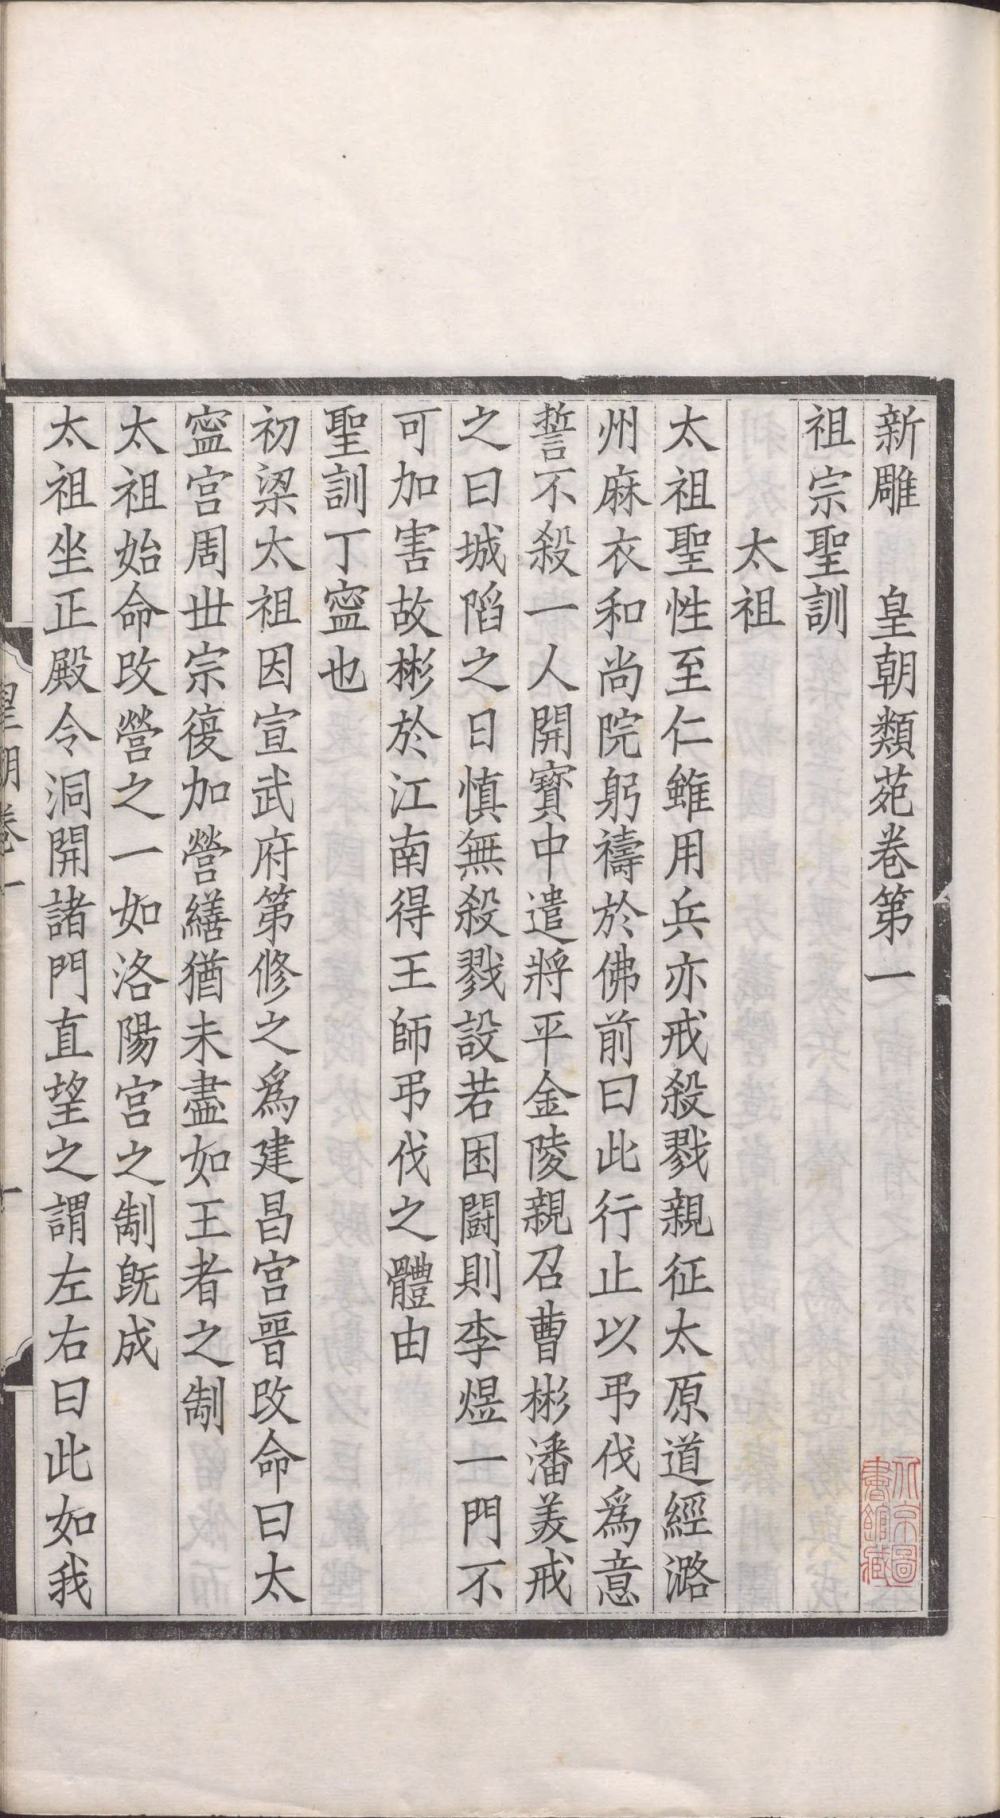 新雕　皇朝類苑卷第一
祖宗聖訓
太祖
太祖聖性至仁雖用兵亦戒殺戮親征太原道經潞
州麻衣和尚院躬禱於佛前曰此行止以弔伐為意
誓不殺一人開寶中遣將平金陵親召曹彬潘美戒
之曰城陷之日慎無殺戮設若困闘則李煜一門不
可加害故彬於江南得王師弔伐之體由
聖訓丁寍也
初梁太祖因宣武府第修之為建昌宮晉改命曰太
寍宮周丗宗復加營繕猶未盡如王者之制
太祖始命改營之一如洛陽宮之制旣成
太祖坐正殿令洞開諸門直望之謂左右曰此如我
皇朝卷一
一
北京圖書館藏